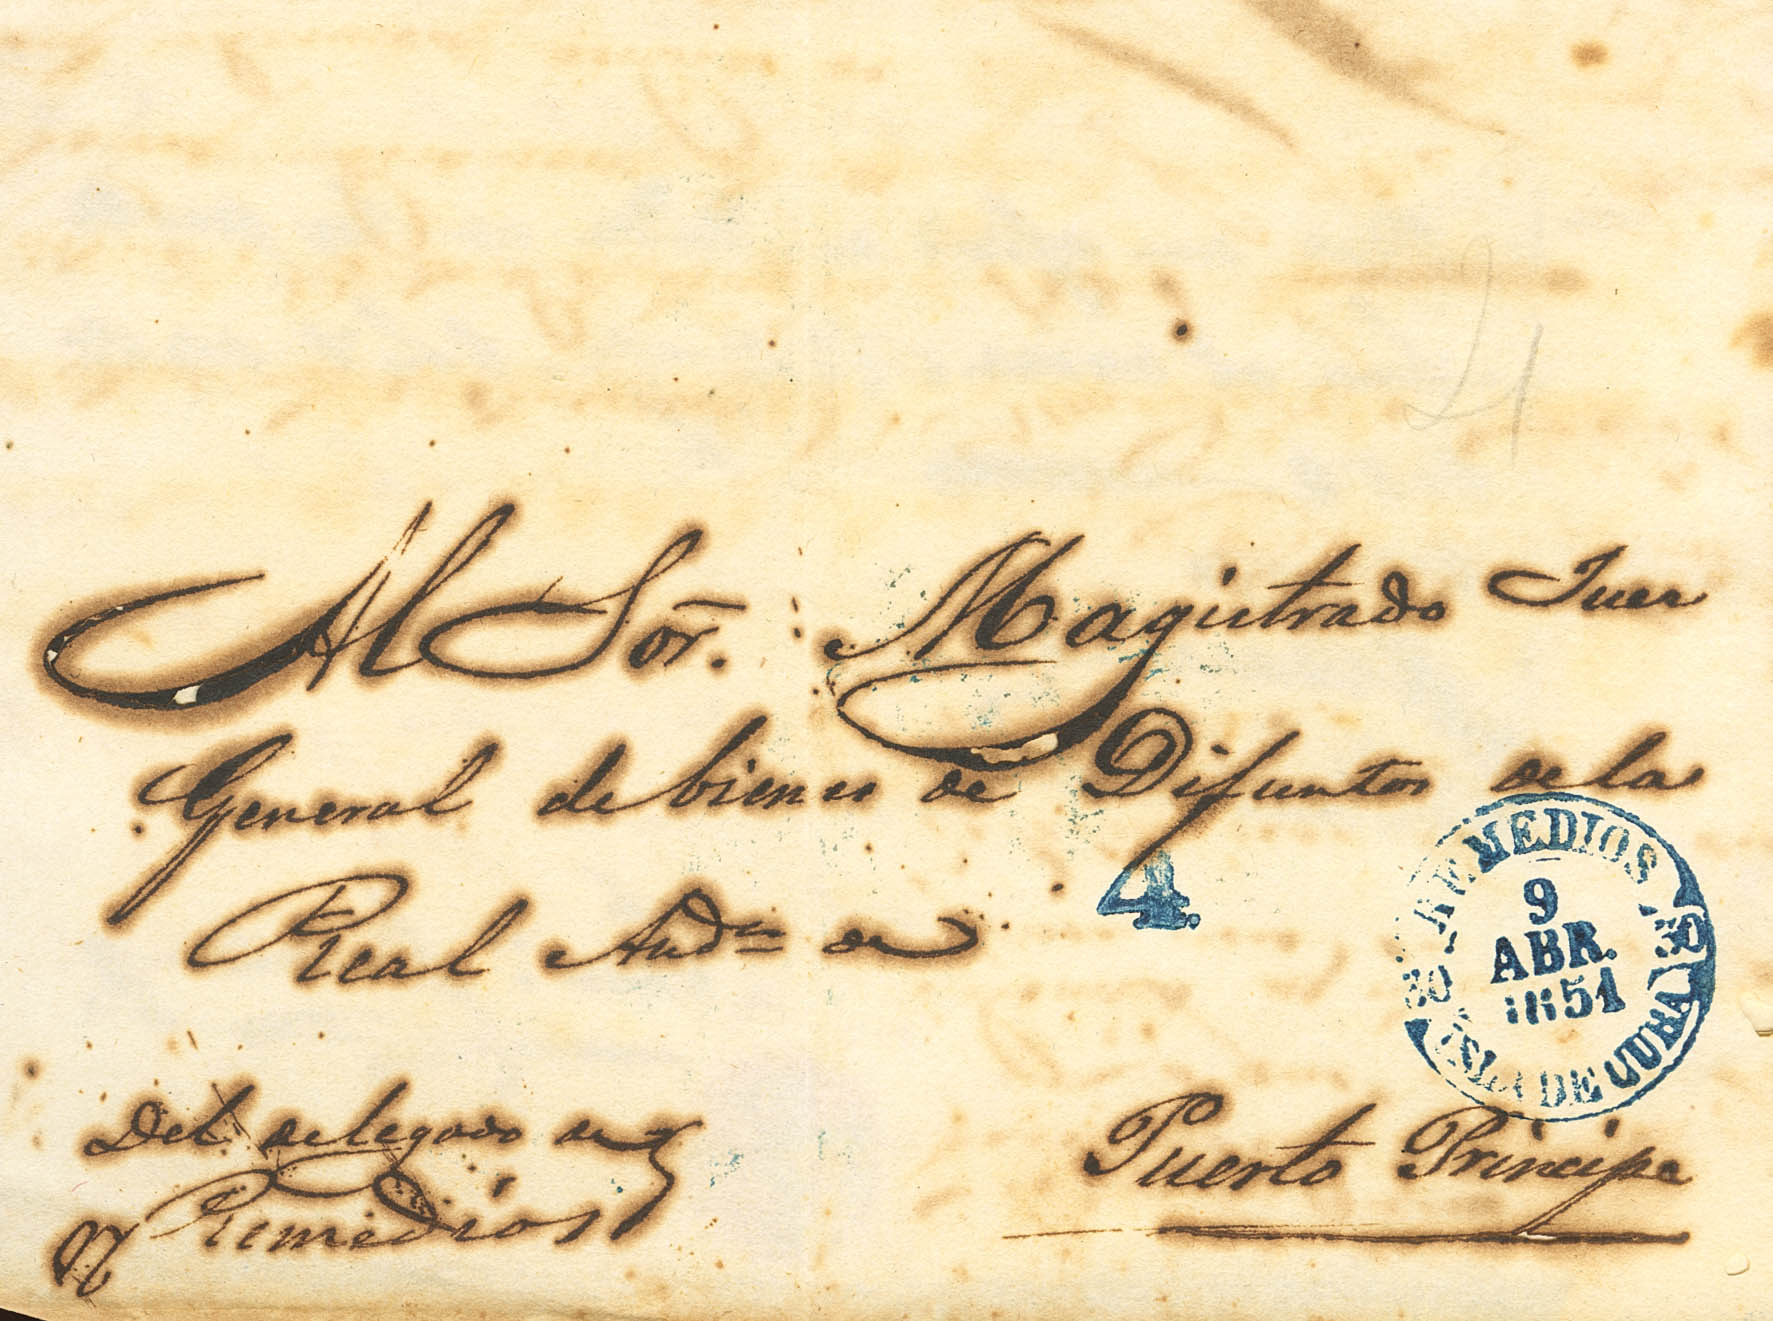 Al Sor. Magistrado Juez
General de bienes de Difuntos de la
Real Audª de
4.
REMEDIOS
30 30
9
ABR.
1851
ISLA DE CUBA
Del delegado en
Remedios
Puerto Principe